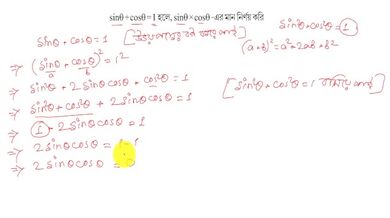 sinθ + cosθ = 1 হলে, sinθ × cosθ -এর মান নির্ণয় করি
sinθ + cosθ = 1 [উভয়পক্ষের বর্গ করে পাই]
sin²θ + cos²θ = 1
(a+b)² = a² + 2ab + b²
⇒ (sinθ + cosθ)² = 1²
a b
⇒ sin²θ + 2sinθcosθ + cos²θ = 1
⇒ sin²θ + cos²θ + 2sinθcosθ = 1
[sin²θ + cos²θ = 1 বসিয়ে পাই]
⇒ 1 + 2sinθcosθ = 1
⇒ 2sinθcosθ = 1 - 1
⇒ 2sinθcosθ = 0